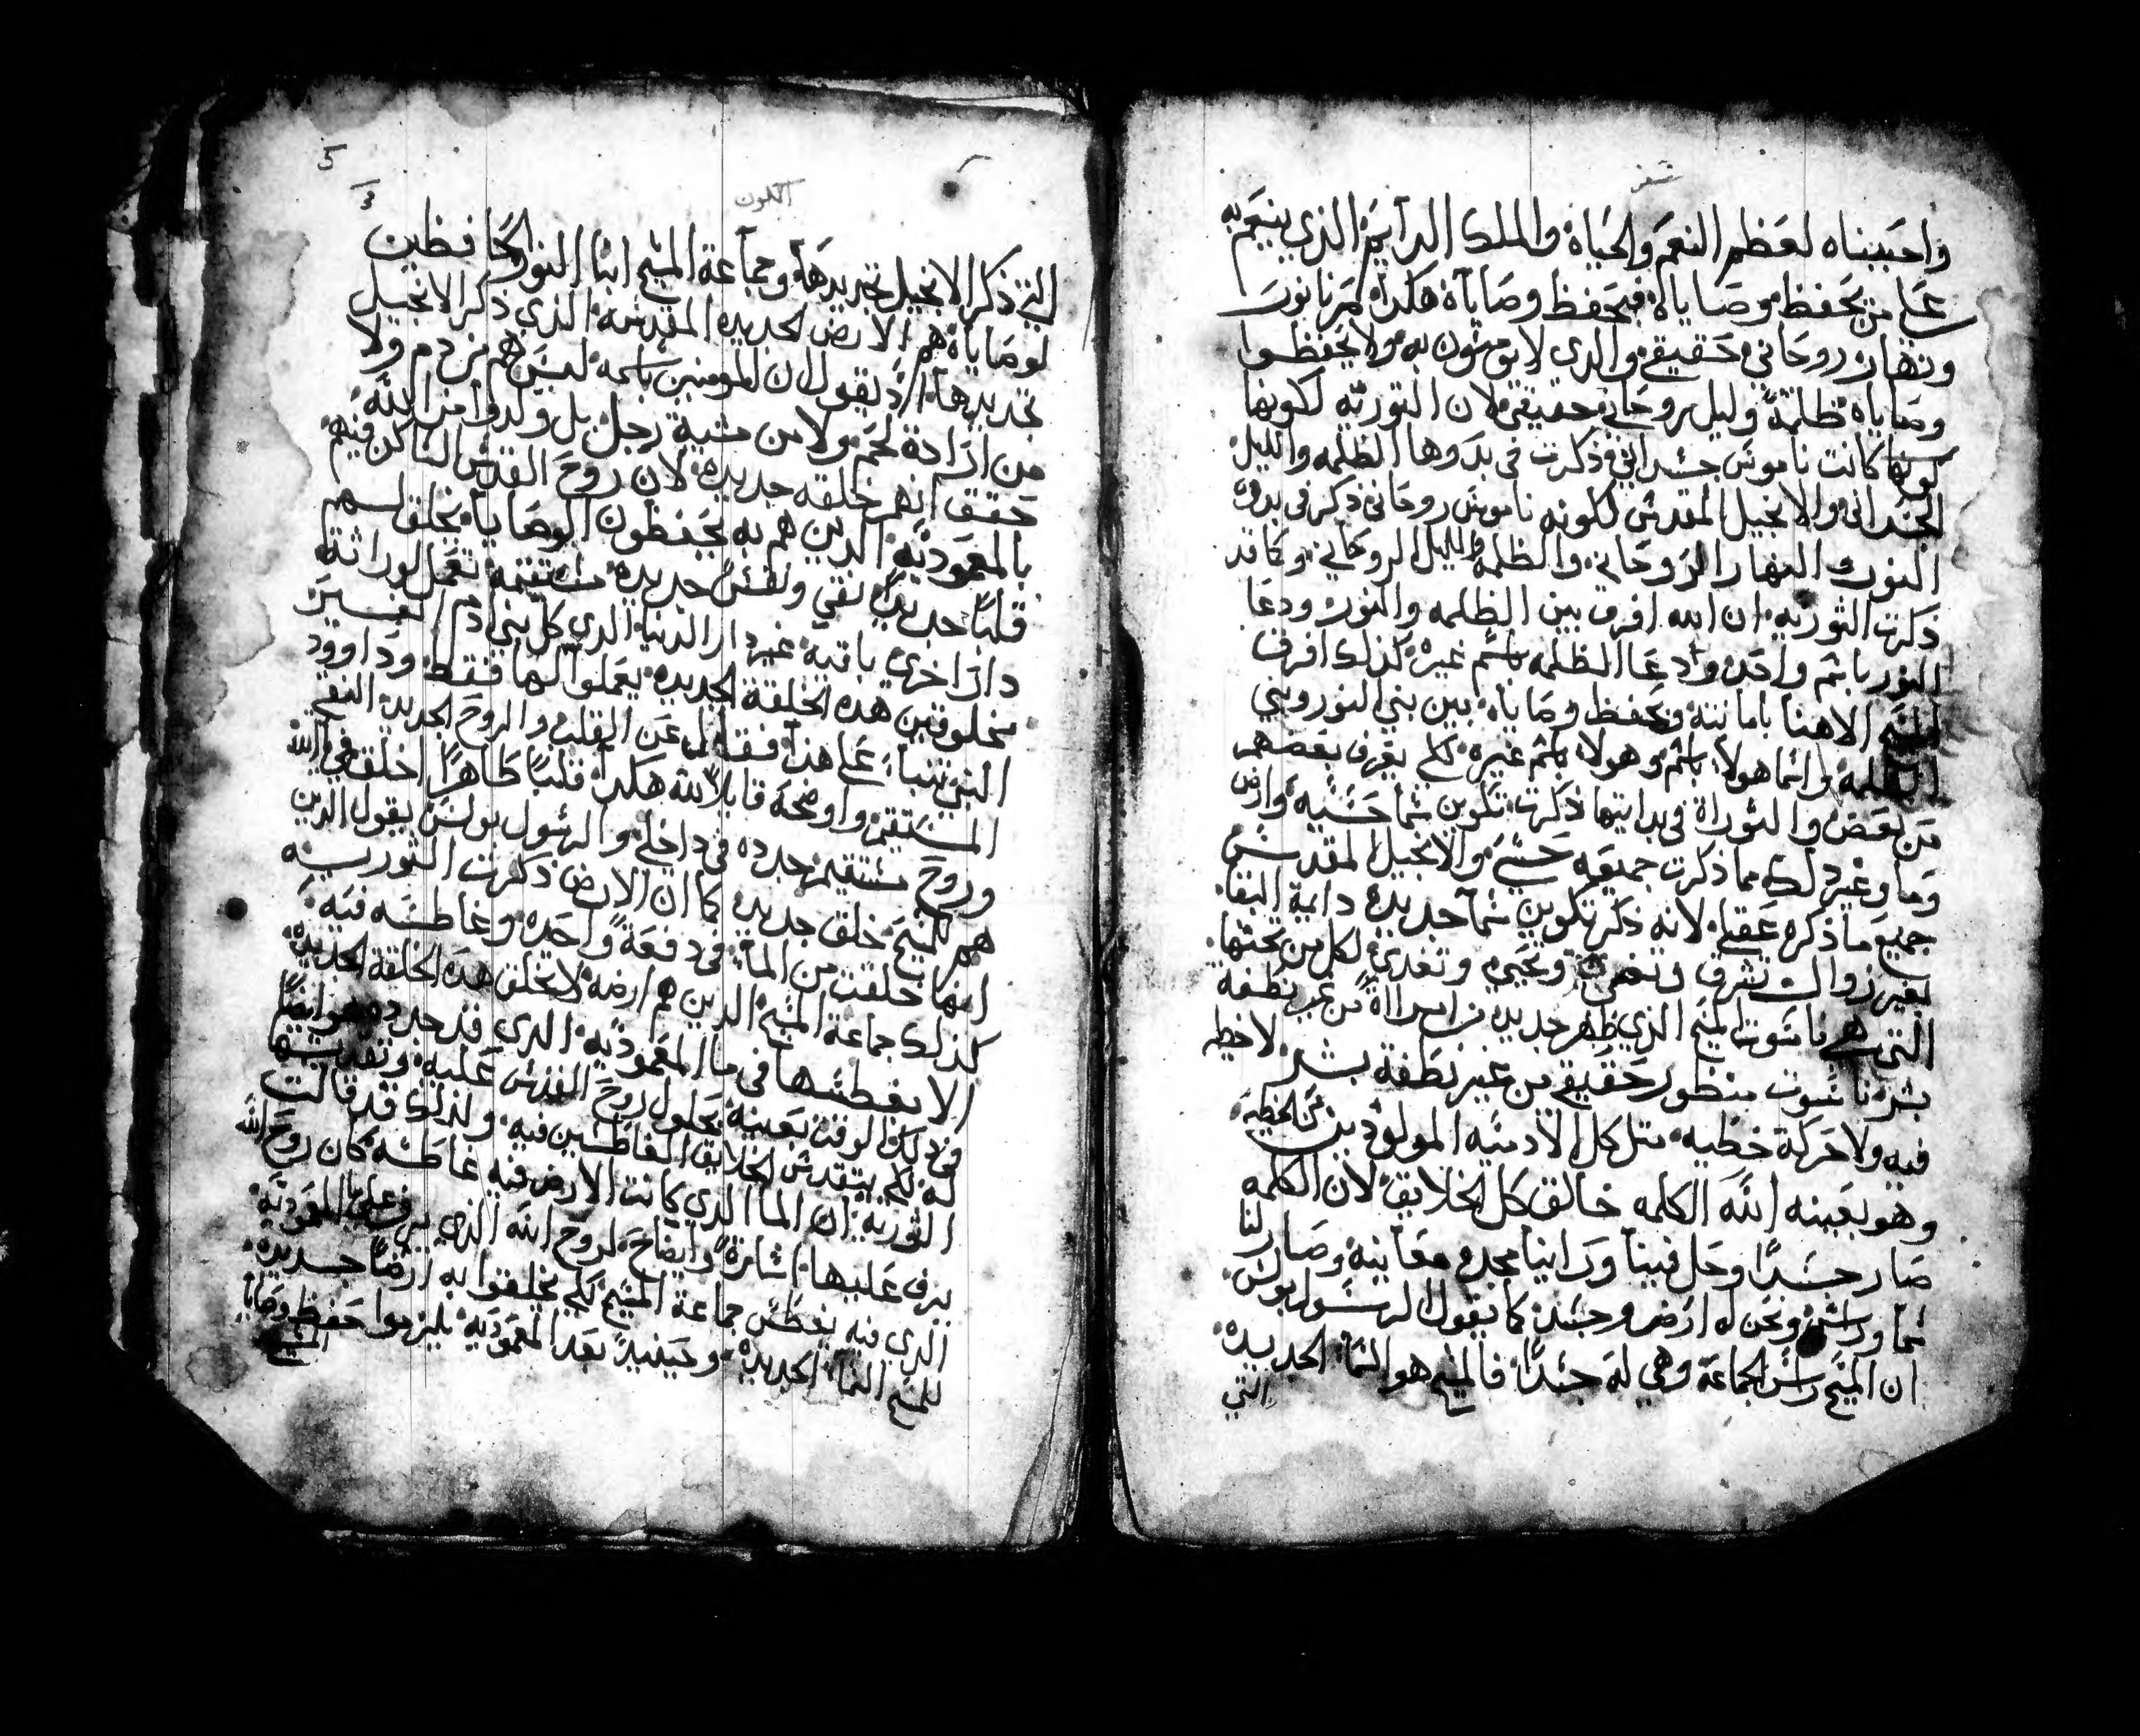 سفر
واحببناه لعظم النعم والحياة والملك الدايم الذي ينعم به
على من يحفظ وصاياه فيحفظ وصاياه هكدا
ونهار روحاني حقيقي والدي لا يومنون به ولا يحفظوا
وصاياه ظلمة وليل روحاني حقيقي لان التوريه لكونها
كونها كانت ناموس جسداني ذكرت في بدوها الظلمه والليل
الجسداني والانجيل المقدس لكونه ناموس روحاني ذكر في بدوه
النور النهار الروحاني والظلمة الليل الروحاني وكما قد
ذكرت التوريه ان الله افرق بين الظلمه والنور ودعا
النور باسم واحد وادعا الظلمه باسم غيره كذلك افرق
المسيح الاهنا بامانته وبحفظ وصاياه بين بني النور وبني
الظلمة وانما هولاء باسم وهولاء باسم غيره لكي يعرف بعضهم
من بعض والتوراة في بدايتها ذكرت تكوين سما حسيه وارض
وما وغير ذلك مما ذكرت جميعه حسي والانجيل المقدس
جميع ما ذكره عقلي لانه ذكر تكوين سما جديده دايمة البقا
بغير زوال تشرق وتضي وتحيي وتغدي لكل من تحتها
التي هي ناسوت المسيح الذي ظهر جديد من امراة من غير نطفة
بشر ناسوت منظور حقيقي من غير نطفة بشر لا خطيه
فيه ولا حركة خطيه مثل كل الادميه المولودين من الخطيه
وهو بعينه الله الكلمه خالق كل الخلايق لان الكلمه
صار جسدا وحل فينا وراينا مجده معاينه وصار لنا
سما وراس ونحن له ارض وجسد كما يقول الرسول بولس
ان المسيح راس الجماعة وهي له جسدا فالمسيح هو السماء الجديده
التي
الكون
5
التي ذكر الانجيل تجديدها وجماعة المسيح ابنا النور الحافظين
لوصاياه هم الارض الجديده المقدسة الذي ذكر الانجيل
تجديدها اذ يقول ان المومنين باسمه ليس هم من دم ولا
من ارادة لحم ولا من مشية رجل بل ولدوا من الله
حقق انهم خلقه جديده لان روح القدس الساكن فيهم
بالمعموديه الدين هم به يحفظون الوصايا يخلق لهم
قلبا جديدا نقي ونفس جديده مستقيمه تعمل لوراثة
دار اخرى باقية غير دار الدنيا الدي كل بني ادم الغير
مخلوقين هده الخلقة الجديده يعملوا لها فقط وداوود
النبي تنبا على هذا فقال عن القلب والروح الجديد النقي
المستقيم واوضحه قايلا لله هكدا قلبا طاهرا اخلق في يا الله
وروح مستقيم جدده في داخلي والرسول بولس يقول الدين
هم للمسيح خلق جديد كما ان الارض ذكرت التوريه
انها خلقت من الما في دفعة واحده وغاطسه فيه
كذلك جماعة المسيح الدين هم ارضه لا تخلق هذه الخلقة الجديده
الا بغطسها في ما المعموديه الدي قد جدده هو ايضا
في ذلك الوقت بعينه بحلول روح القدس عليه وتقديسه
له لكي يتقدس الخلايق الغاطسين فيه ولذلك قد قالت
التوريه ان الما الدي كانت الارض فيه غاطسه كان روح الله
يرف عليها اشارة وايضاح لروح الله الذي يرف على ما المعموديه
الدي فيه يغطس جماعة المسيح لكي يخلقوا به ارضا جديده
للمسيح السماء الجديده وحينيد بعد المعموديه يلتزموا حفظ وصايا
المسيح